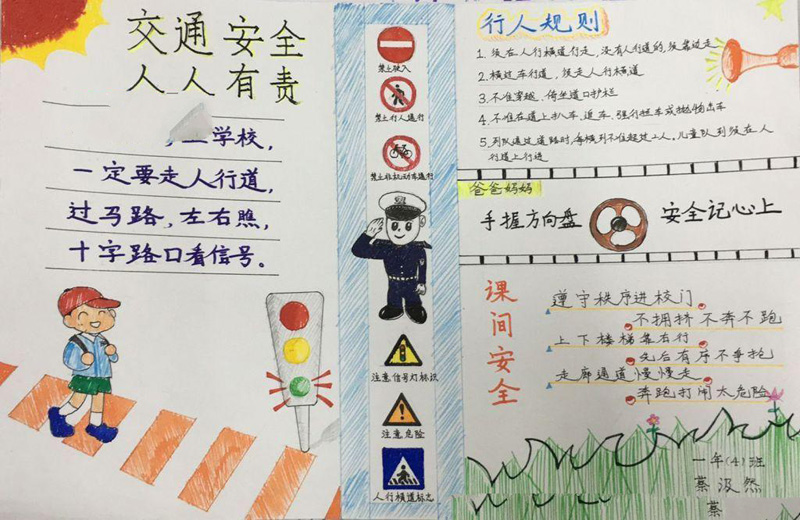 交通安全
人人有责
学校，
一定要走人行道，
过马路，左右瞧，
十字路口看信号。
禁止驶入
禁止行人通行
禁止非机动车通行
注意信号灯标识
注意危险
人行横道标志
行人规则
1. 须在人行横道行走，没有人行道的，须靠边走
2. 横过车行道，须走人行横道
3. 不准穿越、倚坐道口护栏
4. 不准在道上扒车、追车、强行拦车或抛物击车
5. 列队通过道路时，每横列不准超过二人，儿童队列须在人
行道上行进
爸爸妈妈
手握方向盘 安全记心上
课间安全
遵守秩序进校门
不拥挤不奔不跑
上下楼梯靠右行
先后有序不争抢
走廊通道慢慢走
奔跑打闹太危险
一年(4)班
蔡汲然
蔡